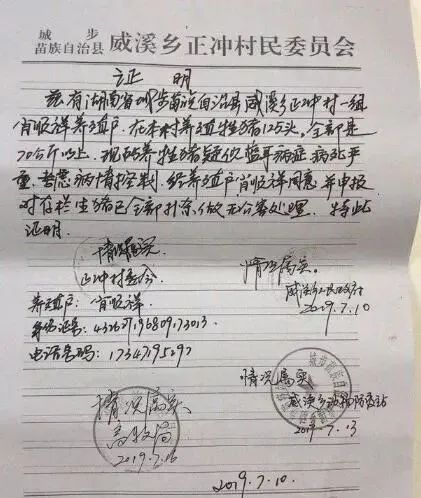 城步
苗族自治县 威溪乡正冲村民委员会
证明
兹有湖南省城步苗族自治县威溪乡正冲村一组
肖顺祥养殖户，在本村养殖牲猪125头。全部是
70公斤以上，现所养牲猪疑似蓝耳病症，病死严
重，无法病情控制，经养殖户肖顺祥同意并申报
对存栏生猪已全部扑杀，做无公害处理。特此
证明。
情况属实
正冲村委会
情况属实。
威溪乡人民政府
2019.7.10
养殖户：肖顺祥
身份证号：
电话号码：
情况属实
威溪乡动物防疫站
2019.7.13
情况属实
畜牧局
2019.7.16
2019.7.10.